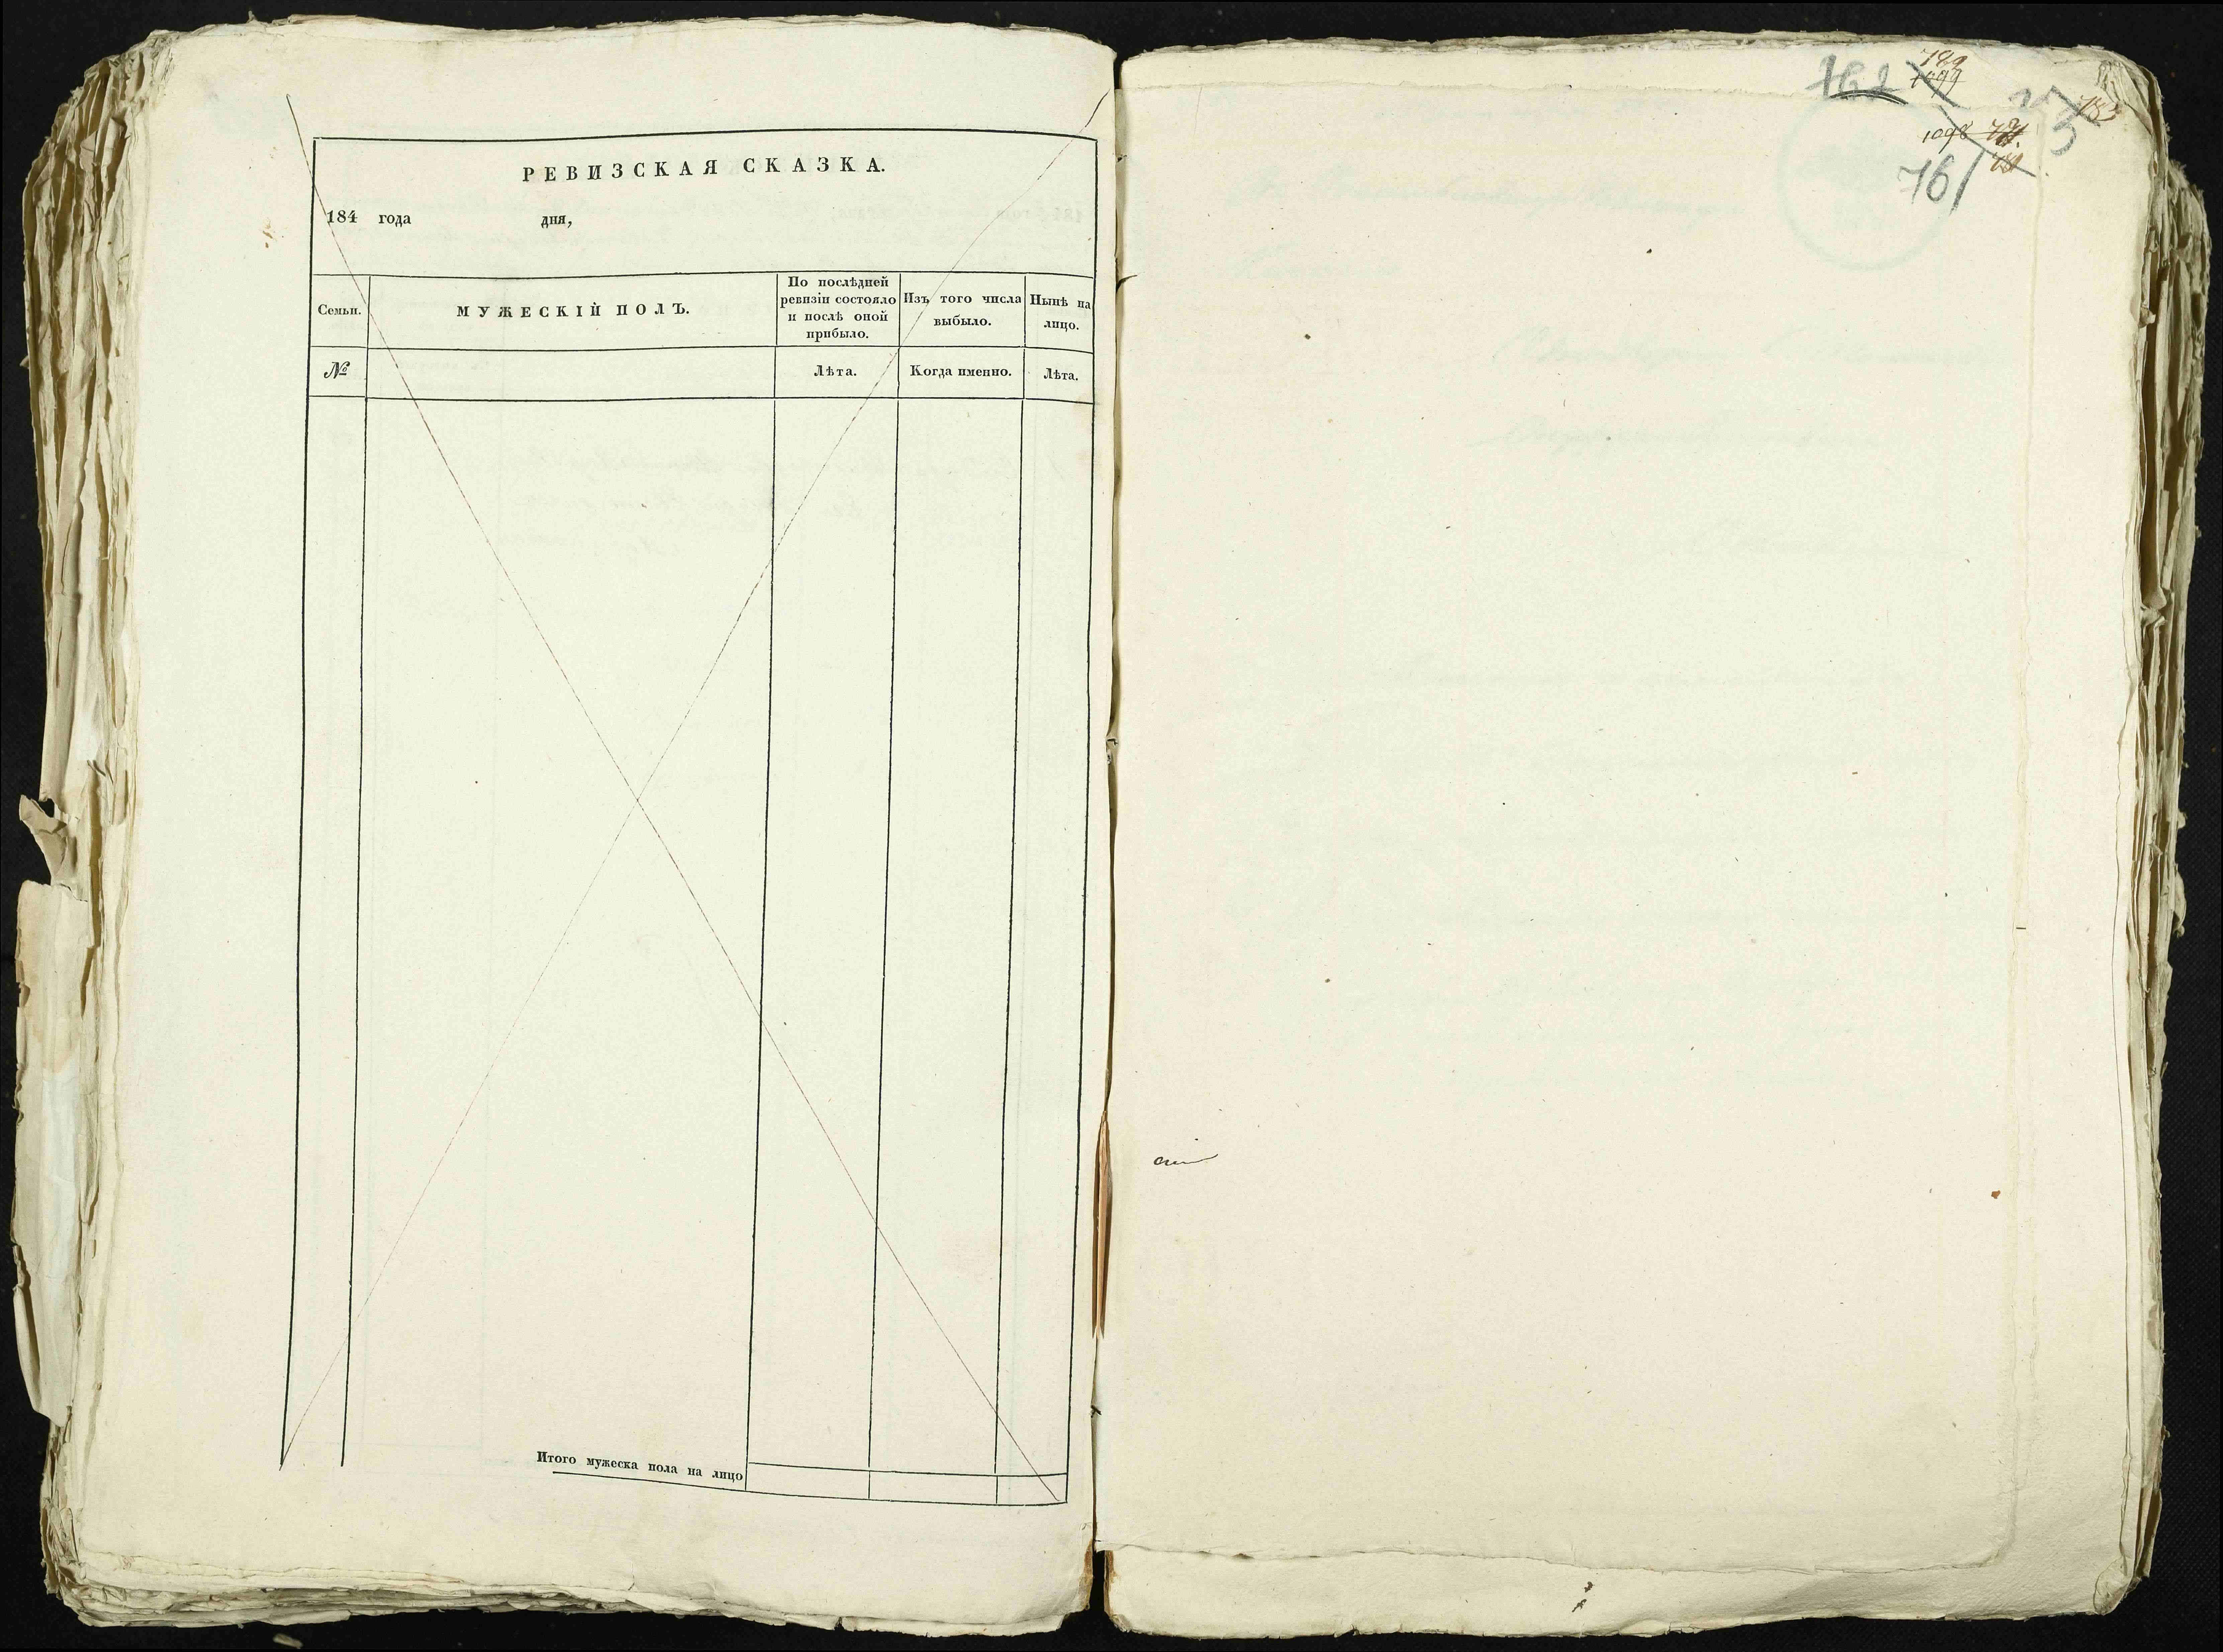 РЕВИЗСКАЯ СКАЗКА.
184 года дня,
Семьи.
МУЖЕСКІЙ ПОЛЪ.
По послѣдней
ревизіи состояло
и послѣ оной
прибыло.
Изъ того числа
выбыло.
Нынѣ на
лицо.
№
Лѣта.
Когда именно.
Лѣта.
Итого мужеска пола на лицо
762
789
1099
1098
761